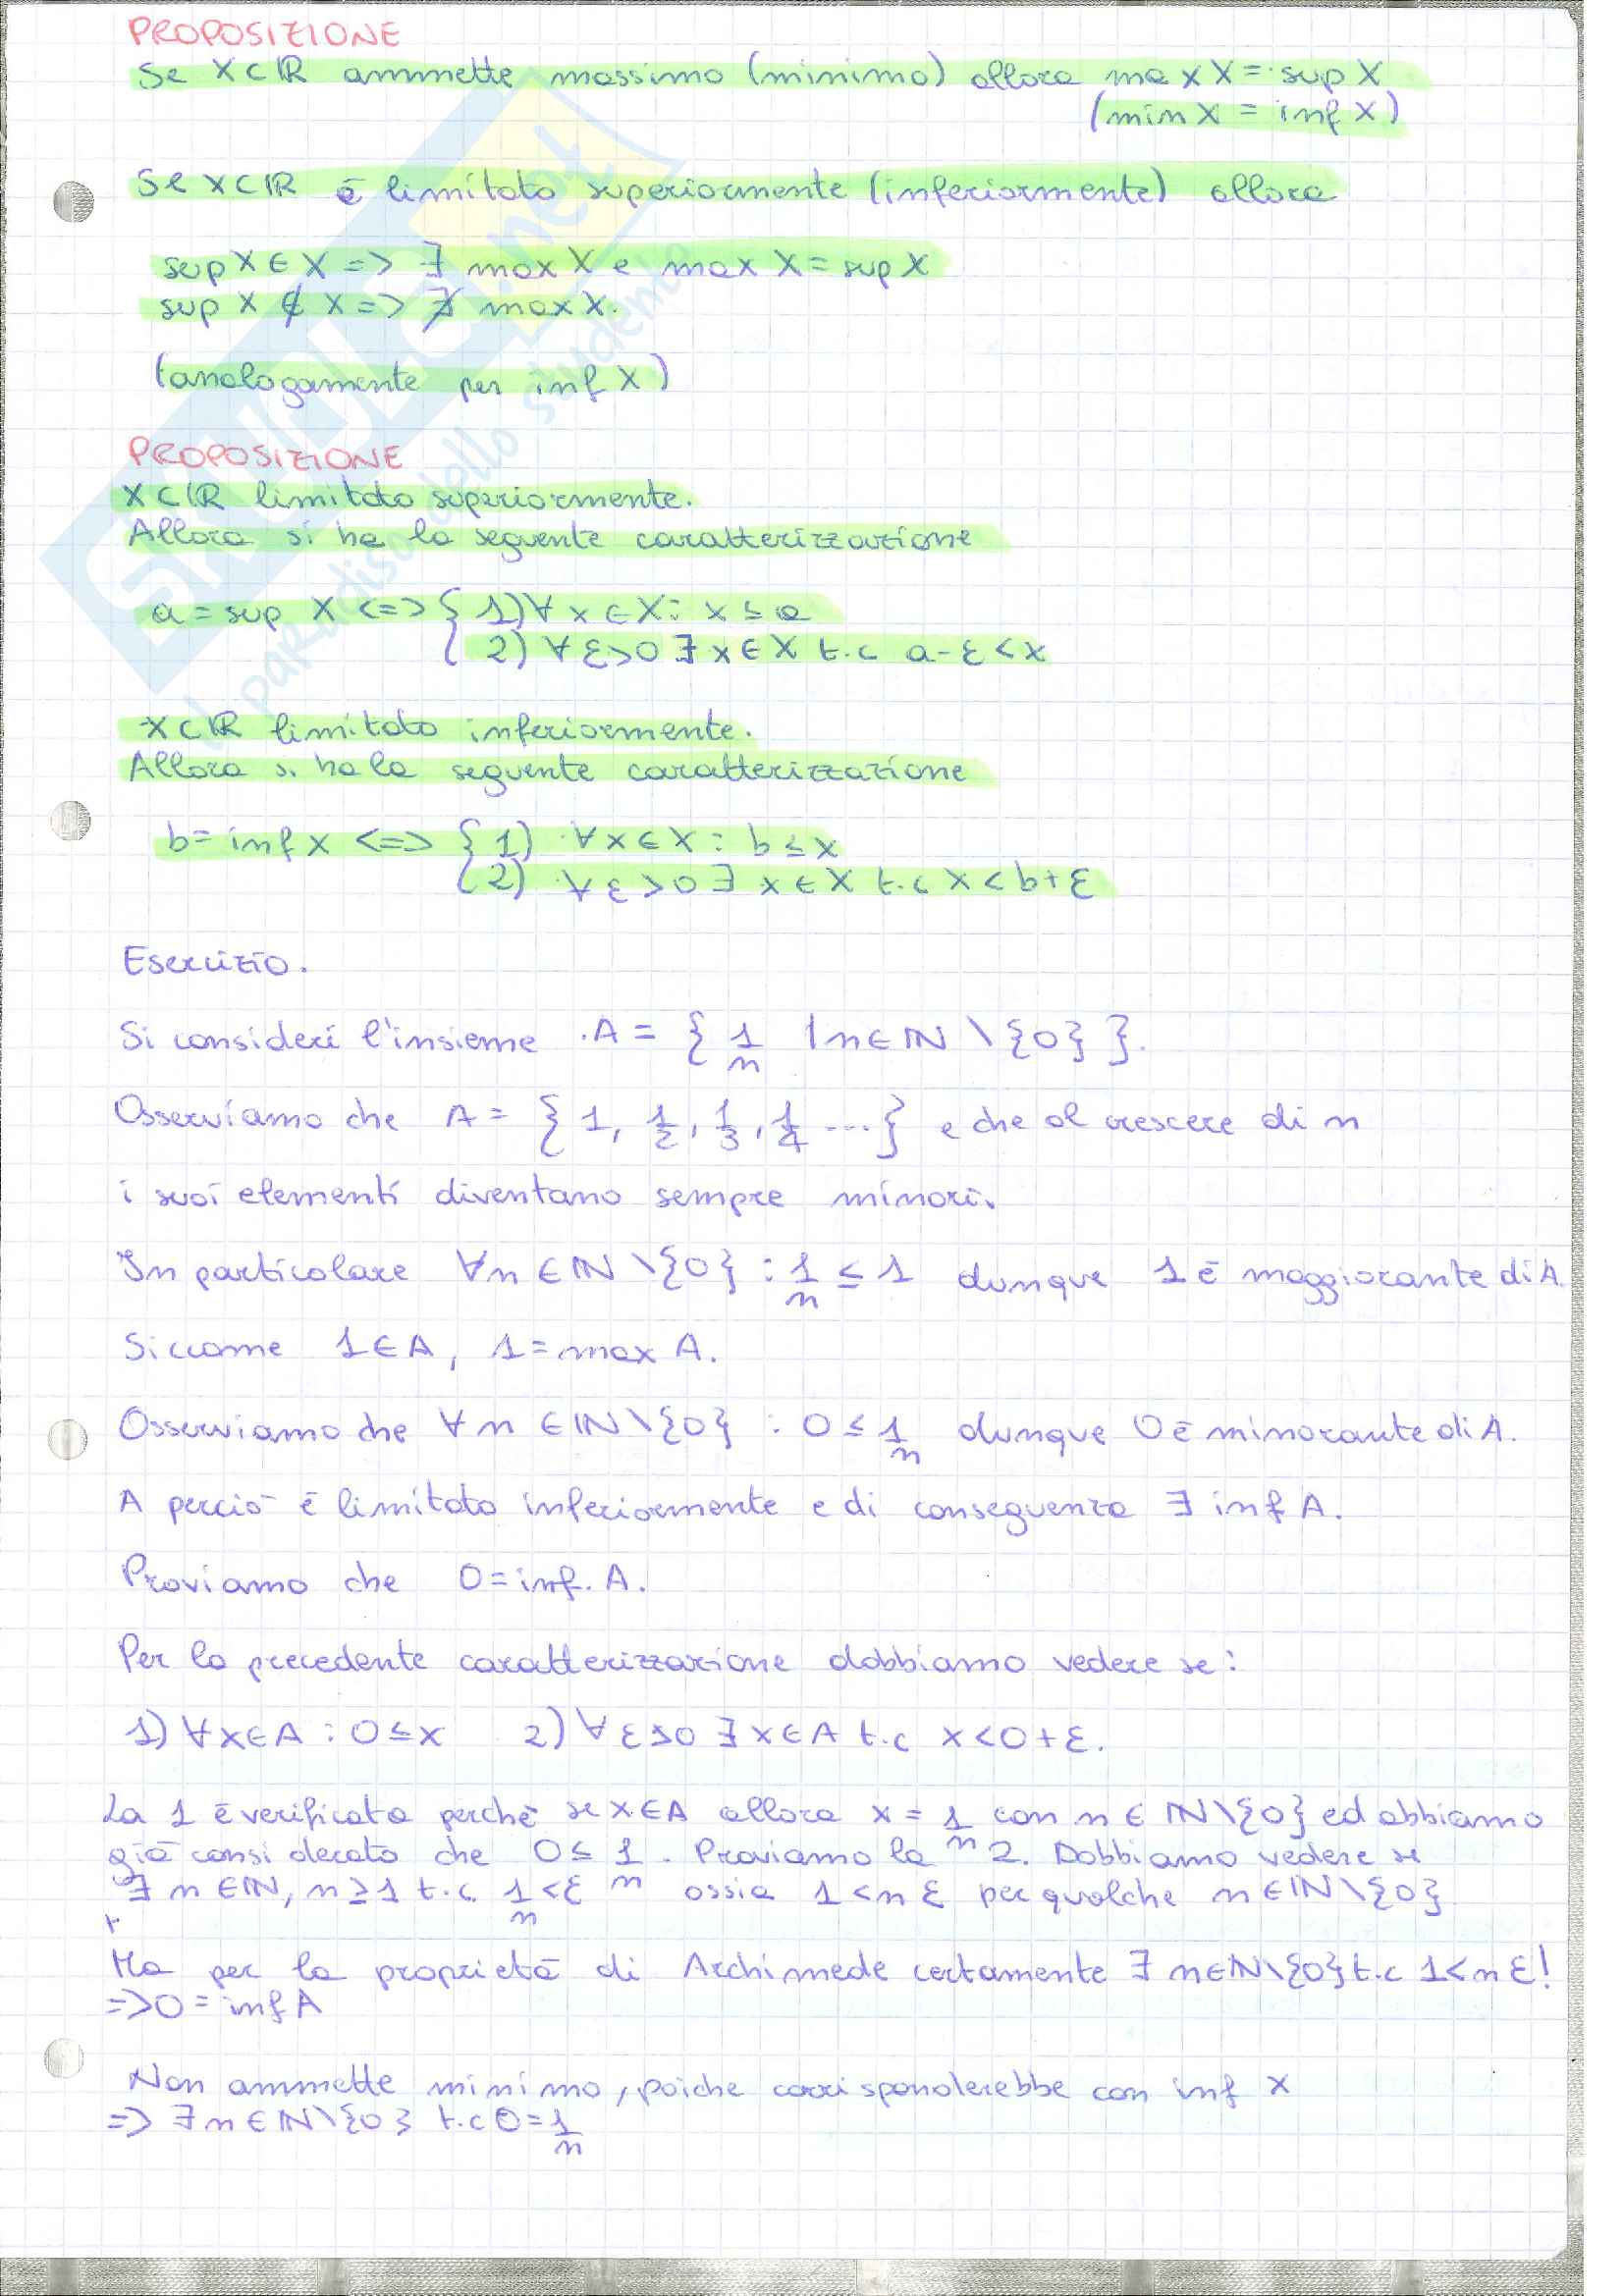 PROPOSIZIONE
Se X⊂ℝ ammette massimo (minimo) allora max X = sup X
(min X = inf X)
Se X⊂ℝ è limitato superiormente (inferiormente) allora
sup X ∈ X => ∃ max X e max X = sup X
sup X ∉ X => ∄ max X.
(analogamente per inf X)
PROPOSIZIONE
X⊂ℝ limitato superiormente.
Allora si ha la seguente caratterizzazione
a = sup X <=> { 1) ∀ x ∈ X : x ≤ a
2) ∀ ε>0 ∃ x ∈ X t.c a-ε < x
X⊂ℝ limitato inferiormente.
Allora si ha la seguente caratterizzazione
b = inf X <=> { 1) ∀ x ∈ X : b ≤ x
2) ∀ ε>0 ∃ x ∈ X t.c x < b+ε
Esercizio.
Si consideri l'insieme A = { 1/n | n ∈ ℕ \ {0} }.
Osserviamo che A = { 1, 1/2, 1/3, 1/4 ... } e che al crescere di n
i suoi elementi diventano sempre minori.
In particolare ∀ n ∈ ℕ \ {0} : 1/n ≤ 1 dunque 1 è maggiorante di A.
Siccome 1 ∈ A, 1 = max A.
Osserviamo che ∀ n ∈ ℕ \ {0} : 0 ≤ 1/n dunque 0 è minorante di A.
A perciò è limitato inferiormente e di conseguenza ∃ inf A.
Proviamo che 0 = inf. A.
Per la precedente caratterizzazione dobbiamo vedere se:
1) ∀ x ∈ A : 0 ≤ x 2) ∀ ε>0 ∃ x ∈ A t.c x < 0+ε.
La 1 è verificata perchè se x ∈ A allora x = 1/n con n ∈ ℕ \ {0} ed abbiamo
già considerato che 0 ≤ 1/n. Proviamo la 2. Dobbiamo vedere se
∃ n ∈ ℕ, n ≥ 1 t.c. 1/n < ε ossia 1 < n ε per qualche n ∈ ℕ \ {0}
Ma per la proprietà di Archimede certamente ∃ n ∈ ℕ \ {0} t.c 1 < n ε!
=> 0 = inf A
Non ammette minimo, poiche corrisponderebbe con inf X
=> ∃ n ∈ ℕ \ {0} t.c 0 = 1/n
SKUOLA.net
il paradiso dello studente